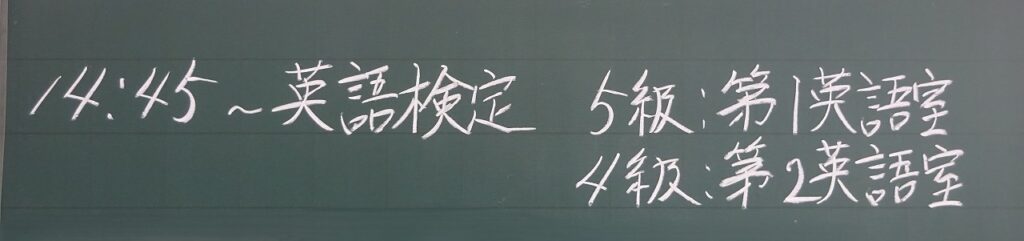 14:45～英語検定 5級:第1英語室
4級:第2英語室